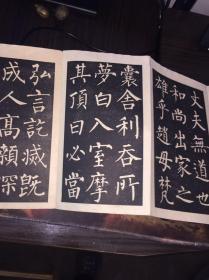 丈夫無道也
和尚出家之
雄乎趙母梵
囊舍利吞所
夢白入室摩
其頂曰必當
弘言訖滅既
成人高顙深